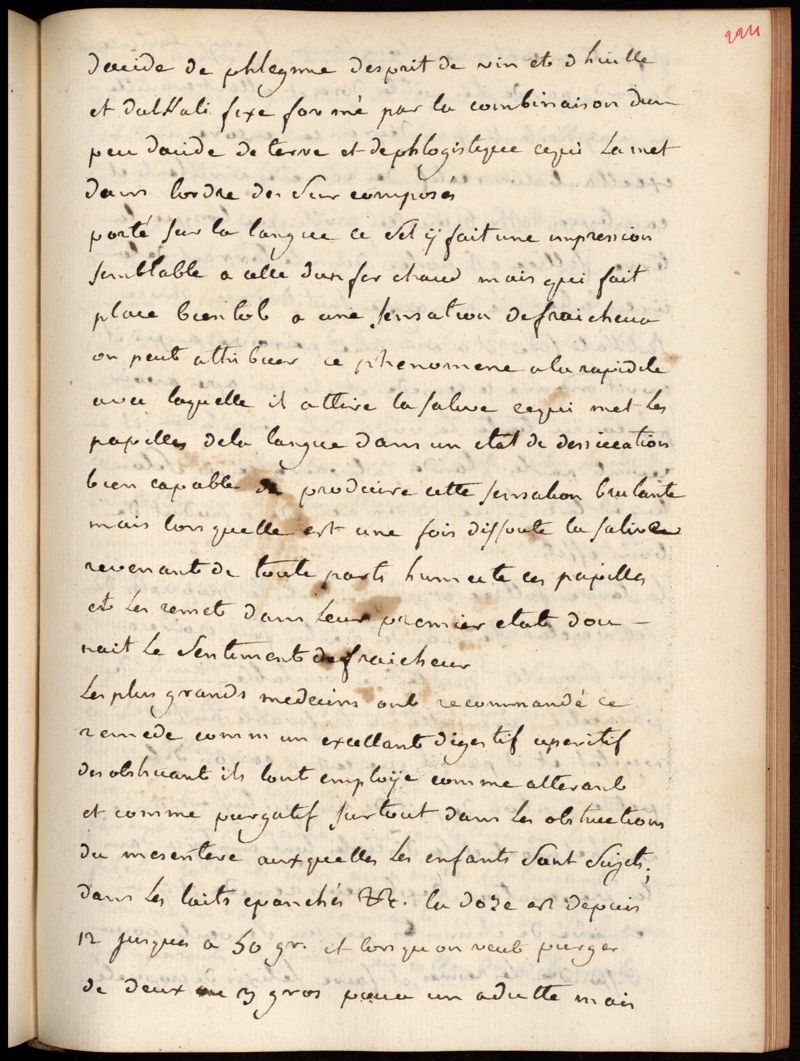 224
dacide de phlegme desprit de vin et dhuille
et dalkali fixe formé par la combinaison dun
peu dacide de terre et dephlogistique cequi lamet
dans lordre des Surcomposés
porté sur la langue ce Sel ÿ fait une impression
semblable a celle dun fer chaud mais qui fait
place bientob a une sensation defraicheur
on peut attribuer ce phenomene ala rapidité
avec laquelle il attire la salive cequi met les
papilles dela langue dans un etat de dessication
bien capable de produire cette sensation brulante
mais lorsquelle est une fois dissoute la salive
revenant de toute parts humecte ces papilles
et les remet dans leur premier etat dou –
nait le Sentiment defraicheur
Les plus grands medecins ont recommandé ce
remede comm un excellant digestif aperitif
desobstruant ils lont employé comme alterant
et comme purgatif surtout dans les obstructions
du mesentere auxquelles les enfants Sont Sujets;
dans les laits epanchés &c. la doze est depuis
12 jusques a 50 gr. et lorsquon veut purger
de deux ou 3 gros pour un adulte mais